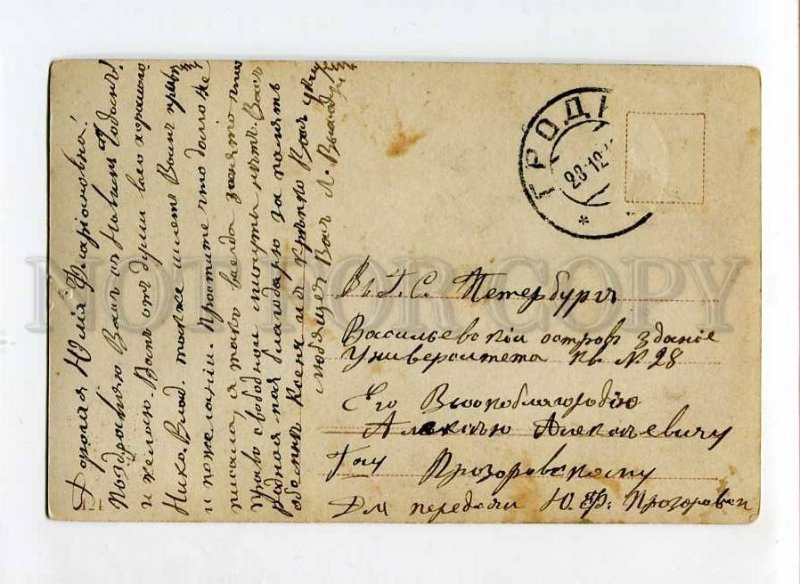 Дорогая Юлія Флоріановна!
Поздравляю Васъ съ Новымъ Годомъ!
и желаю Вамъ отъ души всего хорошаго
Ник. Влад. также шлетъ Вамъ привѣтъ
и пожеланія. Простите что долго не
писала, я такъ всегда занята что
свободной минуты нѣтъ. Васъ
благодарю за память
крѣпко Васъ цѣлую
любящая Васъ Л.
ГРОД
23.12
*
Въ Г. С. Петербургъ
Васильевскій островъ зданіе
Университета кв. № 28
Его Высокоблагородію
Алексѣю Алексѣевичу
Г-ну Прозоровскому
Для передачи Ю. Ф. Прозоровской
121
NOT FOR COPY